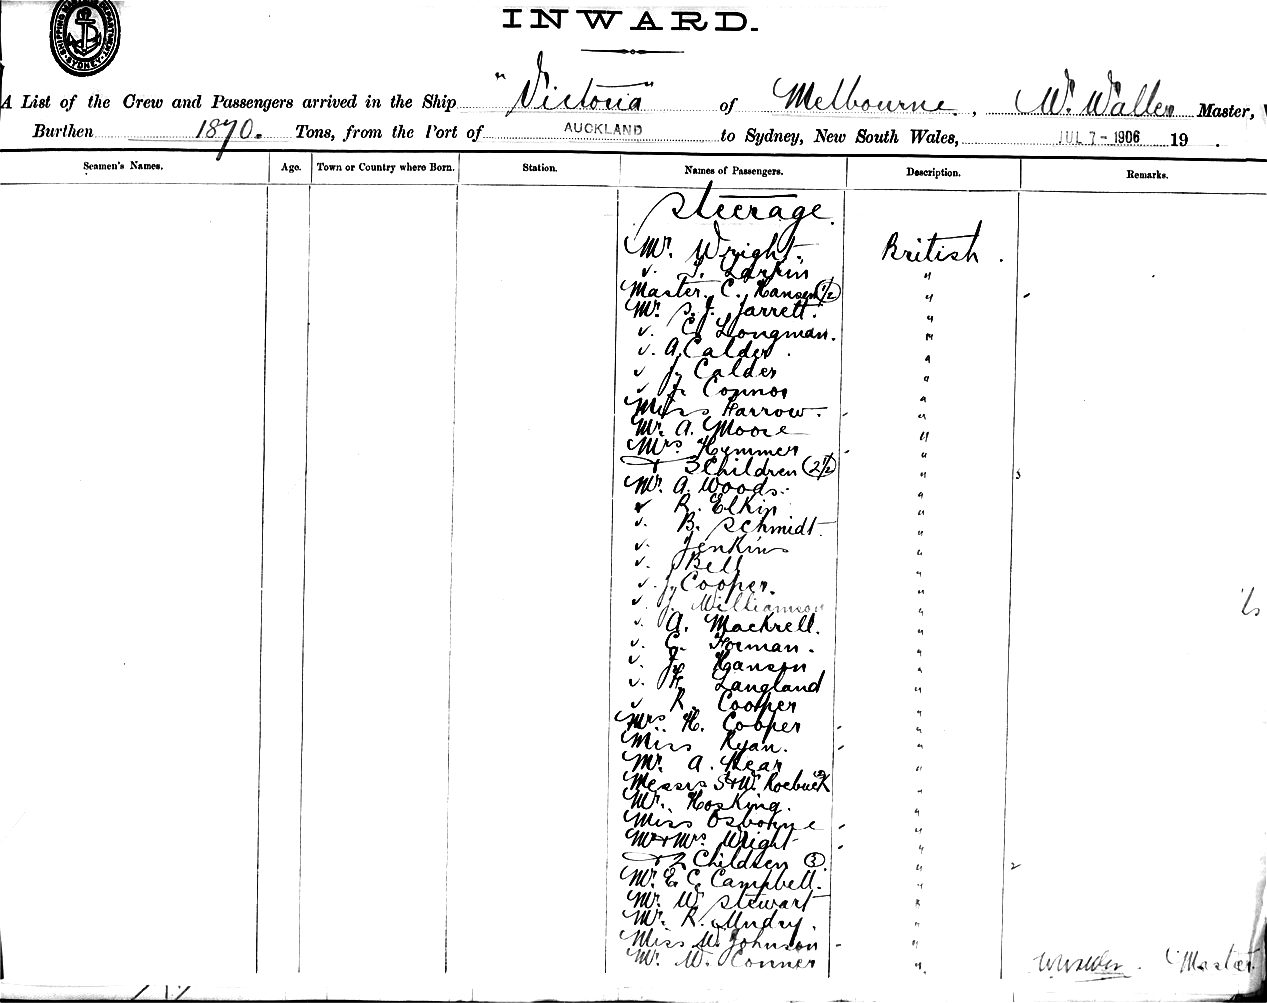 INWARD.
A List of the Crew and Passengers arrived in the Ship "Victoria" of Melbourne, W. Waller Master,
Burthen 1870. Tons, from the Port of AUCKLAND to Sydney, New South Wales, JUL 7 - 1906 19 .
Seamen's Names. Age. Town or Country where Born. Station. Names of Passengers. Description. Remarks.
Steerage.
Mr. Wright. British.
" T. Larkin "
Master. C. Hansen (1/2) "
Mr. S. J. Jarrett. "
" C. Longman. "
" A. Calder. "
" J. Calder "
" J. Connor "
Miss Harrow. "
Mr. A. Moore "
Mrs. Hymmer "
+ 3 Children (2 1/2) " 3
Mr. A. Woods. "
" R. Elkin "
" B. Schmidt "
" Jenkins "
" J Bell "
" J. Cooper. "
" J. Williamson "
" A. Mackrell. "
" C. Forman. "
" J. Hanson "
" H. Langland "
" R. Cooper "
Mrs. H. Cooper "
Miss Ryan. "
Mr. A. Hear "
Messrs S & W. Roebuck 2 "
Mr. Hosking. "
Miss Osborne "
Mr + Mrs. Wright "
+ 2 Children (3) " 2
Mr. E. C. Campbell. "
Mr. W. Stewart "
Mr. R. Undry. "
Miss W. Johnson "
Mr. W. Conner "
Master